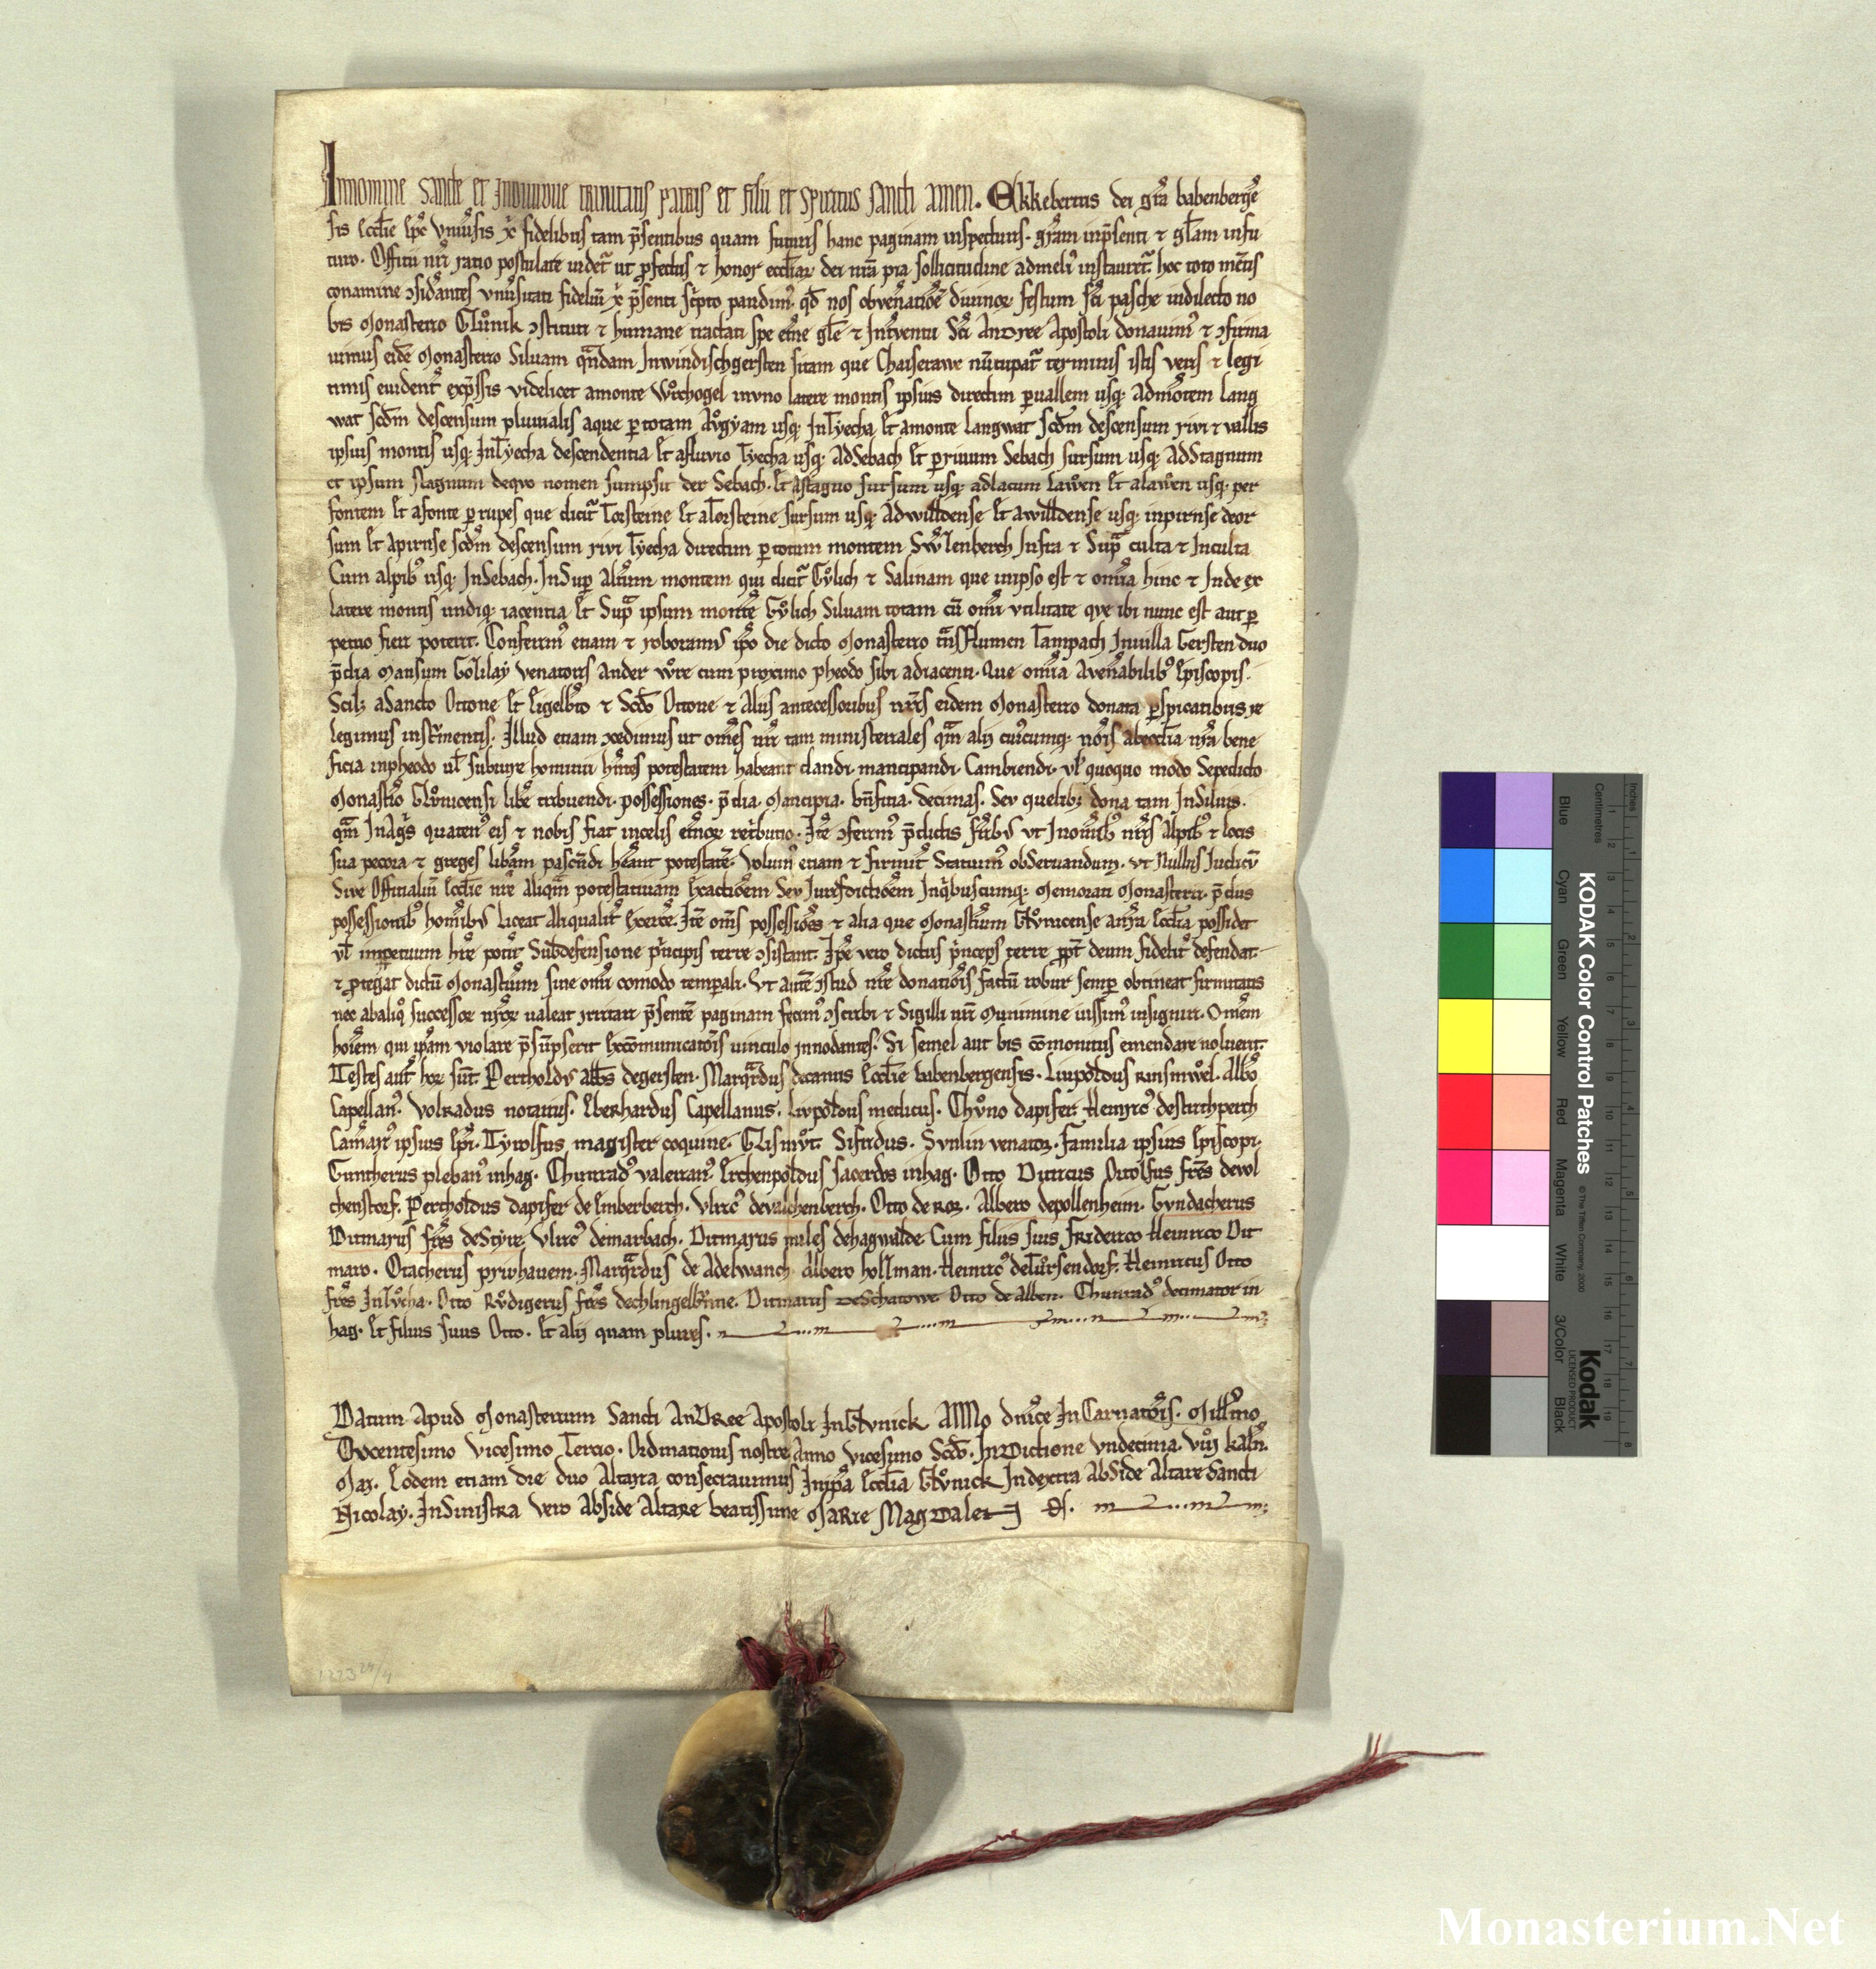 In nomine sancte et indiuidue trinitatis patris et filii et spiritus sancti amen. Ekkebertus dei gra babenberge
sis eccle epc vniusis x fidelibus tam psentibus quam futuris hanc paginam inspecturis. gram inpsenti et glam infu
turo. Officii nri ratio postulare uidet ut pfectus et honor eccliar dei nra pia sollicitudine admeli instauret. hoc toto mtis
conamine sidantes vniusitati fideliu x psenti scpto pandim. qd nos obuenatioe diuinor festum sci pasche indilecto no
bis Monasterio Glunik stituti et humane tractati spe etne gle et Intventu Sci Andree Apostoli donauim et firma
uimus eide Monasterio Siluam qndam Inwindischgersten sitam que Chaiserawe nucupat terminis istis veris et legi
timis euident expssis videlicet amonte Wrchogel inuno latere montis ipsius directum puallem usq; Admotem Lang
wat scdm descensum pluuialis aque ptotam Augyam usq; InTyecha Et amonte Langwat scdm descensum riui et uallis
ipsius montis usq; InTyecha descendentia Et afluuio Tyecha usq; AdSebach Et priuum Sebach sursum usq; AdStagnum
et ipsum stagnum deqvo nomen sumpsit der Sebach. Et astagno sursum usq; adlacum Lawen Et alawen usq; per
fontem Et afonte prupes que dicit Torsteine Et aTorsteine sursum usq; Adwilldense Et awilldense usq; inpirnse deor
sum Et apirnse scdm descensum riui Tyecha directum ptotum montem Swlenberch Infra et Supa culta et Inculta
Cum alpib usq; InSebach. InSup Altum montem qui dicit Gulich et Salinam que inipso est et omnia hinc et Inde ex
latere montis undiq; iacentia Et Supa ipsum monte Gulich Siluam totam cu omi vtilitate que ibi nunc est aut p
petuo fieri poterit. Conferim etiam et roboram ipo die dicto Monasterio tnsFlumen Tampach Inuilla Gersten duo
pdia Mansum Golilay venatoris Ander wre cum proximo pheodo sibi adiacenti. Que omia Avenabilib Episcopis.
Scil; aSancto Ottone Et Eigelbto et Scdo Ottone et Aliis antecessoribus nris eidem Monasterio donata pspicatibus re
legimus instmentis. Illud etiam cedimus ut omes nri tam ministeriales qm alii cuicumq; nois abecclia nra bene
ficia inpheodo ul subiure hominii hntes potestatem habeant dandi. mancipandi. Cambiendi. vl quoquo modo Sepedicto
Monastio Glunicensi libe tribuendi. possessiones. pdia. Mancipia. bnficia. decimas. Sev quelib; dona tam InSiluis.
qm InAqs quaten eis et nobis fiat incelis etnor retbutio. Ite ferim pdictis frib vt Inomib nris Alpib et locis
sua pecora et greges libam pascndi heant potestate. Volum etiam et firmit Statuim obSeruandum. vt Nullus Judicu
Sive Officialiu Eccle nre Aliqm potestatiuam Exactioem Sev Jurisdictioem Inqbuscumq; Memorati Monasterii. pdiis
possessionib homib liceat Aliqualit Exerce. Ite oms possessioes et alia que Monastium Glunicense anra Ecclia possidet
vl inppetuum hre potit Subdefensione pncipis terre sistant. Ipe vero dictus pnceps terre ppt deum fidelit defendat
et ptegat dictu Monastium sine omi comodo temporali. Vt aute istud nre donatiois factu robur semp obtineat firmitatis
nec abaliq successor nror ualeat irritari psente paginam fecim scribi et Sigilli nri Munimine iussim insigniri. Omem
hoiem qui ipam violare psupserit Excomunicatois uinculo innodantes. Si semel aut bis comonitus emendare noluerit.
Testes aut hor sut Pertholdus abbs degersten. Marqrdus decanus Ecclie babenbergensis. Livpoldus Rinsmwl. Alb
Capellan. Volradus notarius. Eberhardus Capellanus. Livpoldus medicus. Chvno dapifer. Heinric destirchperch
Camrar ipsius Epi. Tyrolfus magister coquine. Glismut. Sifridus. Svnlin venator. Familia ipsius Episcopi.
Guntherus pleban inhag. Chunrad ualerian. Erchenpoldus sacerdos inhag. Otto Dittricus Ortolfus fres devol
chenstorf. Pertholdus dapifer de Emberberch. Vlric devalchenberch. Otto de Ror. Albero depollenheim. Gvndacherus
Ditmarus fres deStyre. Vlric demarbach. Ditmarus miles dehagwalde Cum filiis suis Friderico Heinrico Dit
maro. Otacherus prwhauem. Marqrdus de Adelwanch. Albero hollman. Heinric deTursendorf. Heinricus Otto
fres InLucha. Otto Rudigerus fres dechlingelbrnne. Ditmarus deSchatowe Otto de Alben. Chunrad decimator in
hag. Et filius suus Otto. Et alii quam plures.
Datum Apud Monasterium Sancti Andree Apostoli InGlvnick Anno dnice InCarnatois. Millmo
Dvcentesimo Vicesimo Tercio. Ordinationis nostre Anno vicesimo Scdo. InDictione vndecima. viii kaln.
Mai. Eodem etiam die duo Altaria consecrauimus Inipa Ecclia Glvnick Indextra AbSide Altare Sancti
Nicolay. InSinistra vero Abside Altare beatissime Marie Magdalene
1223 24/4
KODAK Color Control Patches
© The Tiffen Company, 2000
Kodak
LICENSED PRODUCT
Inches
Centimetres
Blue
Cyan
Green
Yellow
Red
Magenta
White
3/Color
Black
Monasterium.Net